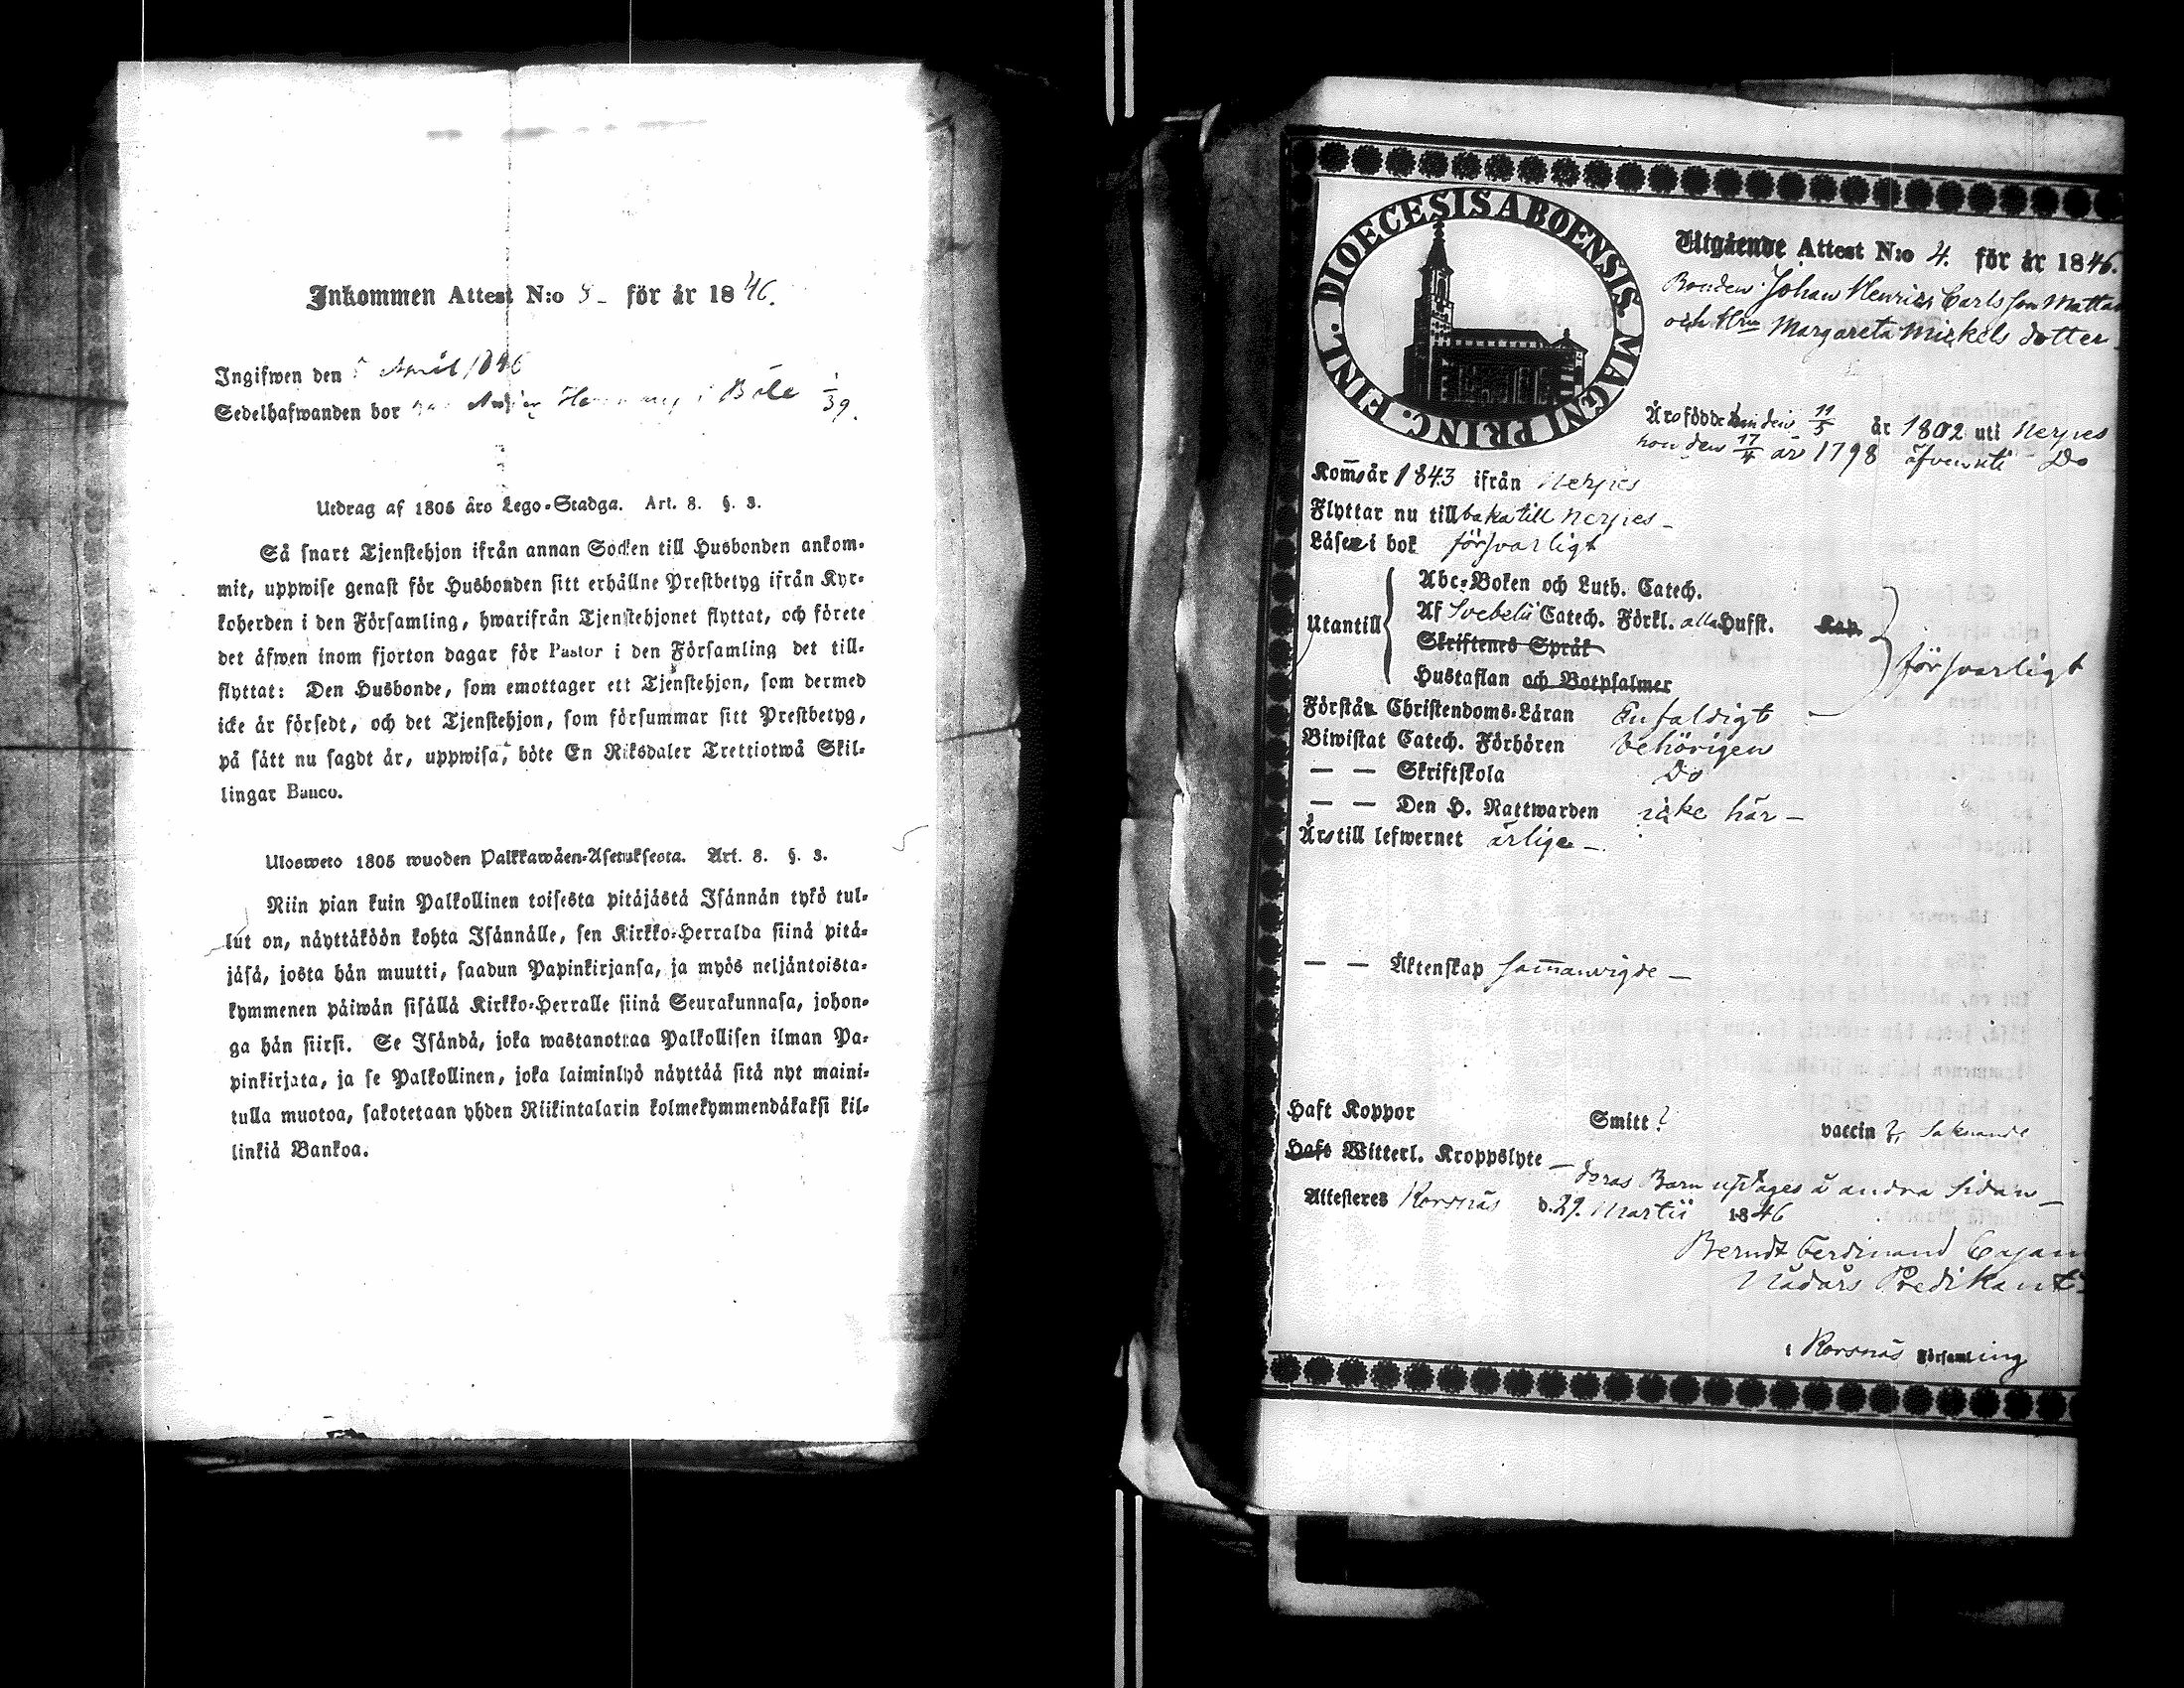 Inkommen Attest N:o för år 1846.
Ingifwen den April 1846
Sedelhafwanden bor i Böle 1/39.
Utdrag af 1805 års Lego-Stadga. Art. 8. §. 3.
Så snart Tjenstehjon ifrån annan Socken till Husbonden ankom-
mit, uppwise genast för Husbonden sitt erhållne Prestbetyg ifrån Kyr-
koherden i den Församling, hwarifrån Tjenstehjonet flyttat, och förete
det äfwen inom fjorton dagar för Pastor i den Församling det till-
flyttat: Den Husbonde, som emottager ett Tjenstehjon, som dermed
icke är försedt, och det Tjenstehjon, som försummar sitt Prestbetyg,
på sätt nu sagdt är, uppwisa, böte En Riksdaler Trettiotwå Skil-
lingar Banco.
Ulosweto 1805 wuoden Palkkawäen-Asetuksesta. Art. 8. §. 3.
Niin pian kuin Palkollinen toisesta pitäjästä Isännän tykö tul-
lut on, näyttäköön kohta Isännälle, sen Kirkko-Herralda siinä pitä-
jäsä, josta hän muutti, saadun Papinkirjansa, ja myös neljäntoista-
kymmenen päiwän sisällä Kirkko-Herralle siinä Seurakunnasa, johon-
ga hän siirsi. Se Isändä, joka wastanottaa Palkollisen ilman Pa-
pinkirjata, ja se Palkollinen, joka laiminlyö näyttää sitä nyt maini-
tulla muotoa, sakotetaan yhden Riikintalarin kolmekymmendäkaksi kil-
linkiä Bankoa.
DIOECESIS ABOENSIS. MAGNI PRINC. FINL.
Utgående Attest N:o 4. för år 1846.
Bonden Johan Henrics Carlsson Mattas
och Hru Margareta Mickels dotter
Äro födde han den 11/5 år 1802 uti Nerpes
hon den 17/4 år 1798 äfven uti Do
Kom̄o år 1843 ifrån Nerpes
Flyttar nu tillbaka till Nerpes –
Läsa i bok försvarligt
Utantill
Abc-Boken och Luth. Catech.
Af Svebelii Catech. Förkl. alla Hufst. Kap.
Skriftenes Språk
Hustaflan och Botpsalmer
försvarligt
Förstå Christendoms-Läran Enfaldigt –
Biwistat Catech. Förhören behörigen
— — Skriftskola Do
— — Den H. Nattwarden icke här –
Äro till lefwernet ärlige –
— — Äktenskap sam̄anvigde –
Haft Koppor Smitt? vaccin saknande
Haft Witterl. Kroppslyte –
deras Barn uptages å andra sidan –
Attesteres Korsnäs d. 29. Martii 1846
Berndt Ferdinand Cajan
Nådårs Predikant
i Korsnäs Församling